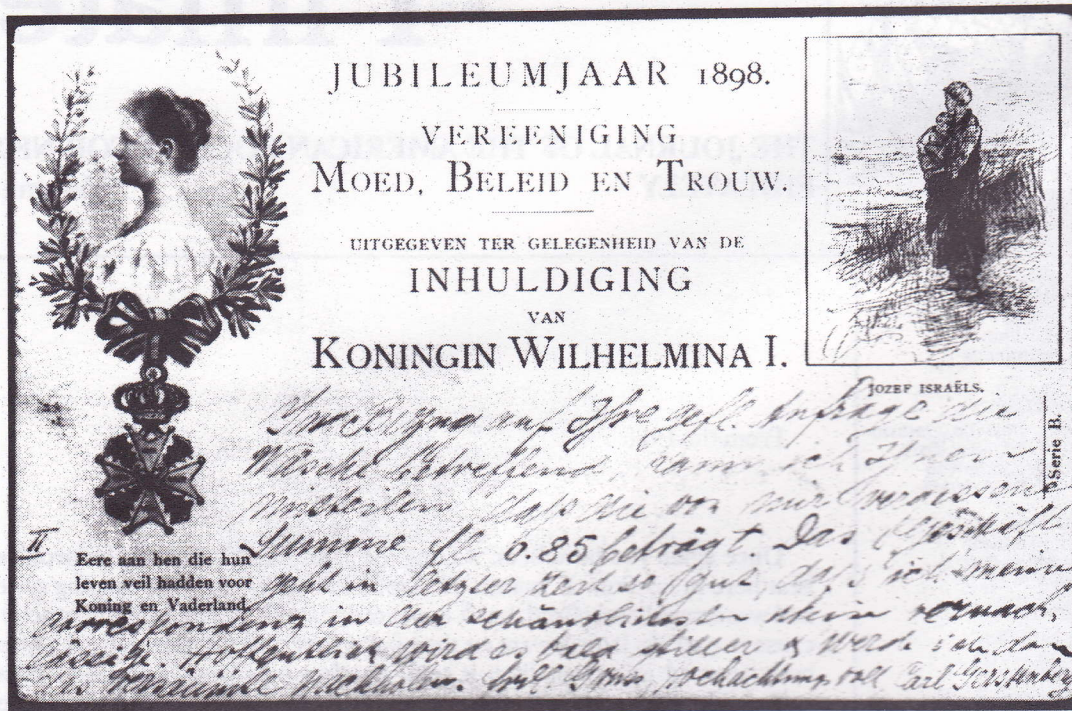 JUBILEUMJAAR 1898.
VEREENIGING
MOED, BELEID EN TROUW.
UITGEGEVEN TER GELEGENHEID VAN DE
INHULDIGING
VAN
KONINGIN WILHELMINA I.
JOZEF ISRAËLS.
Serie B.
II
Eere aan hen die hun
leven veil hadden voor
Koning en Vaderland.
In Bezug auf Ihre gefl. Anfrage die
Wäsche betreffend, kann ich Ihnen
mitteilen dass die von mir
Summe fl 6.85 beträgt. Das Geschäft
geht in letzter Zeit so gut, dass ich meine
correspondenz in der
lässige. Hoffentlich wird es bald stiller & werde ich dann
das Versäumte nachholen. Gruss hochachtungsvoll Carl Gerstenberg